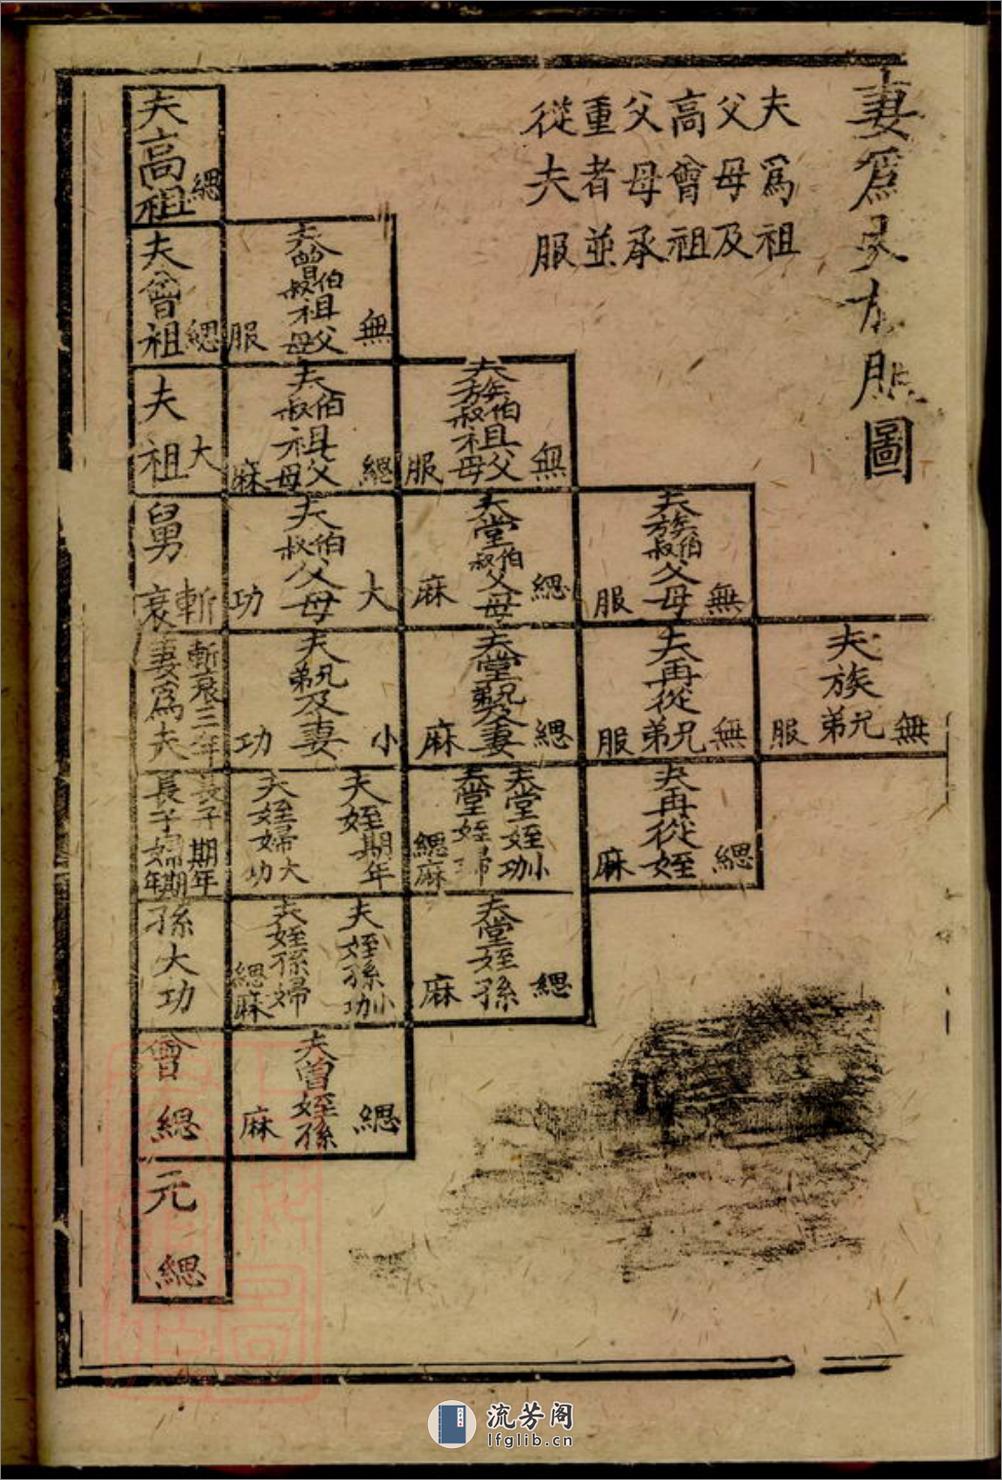 妻爲夫族服圖
夫爲祖
父母及
高曾祖
父母承
重者並
從夫服
夫高祖 緦
夫曾祖 緦
夫曾伯叔祖父母 無服
夫祖 大
夫伯叔祖父母 緦麻
夫族伯叔祖父母 無服
舅 斬衰
夫伯叔父母 大功
夫堂伯叔父母 緦麻
夫族伯叔父母 無服
妻爲夫 斬衰三年
夫兄弟及妻 小功
夫堂兄弟及妻 緦麻
夫再從兄弟 無服
夫族兄弟 無服
長子 期年
長子婦 期年
夫姪 期年
夫姪婦 大功
夫堂姪 小功
夫堂姪婦 緦麻
夫再從姪 緦麻
孫 大功
夫姪孫 小功
夫姪孫婦 緦麻
夫堂姪孫 緦麻
曾 緦
夫曾姪孫 緦麻
元 緦
流芳阁
lfglib.cn